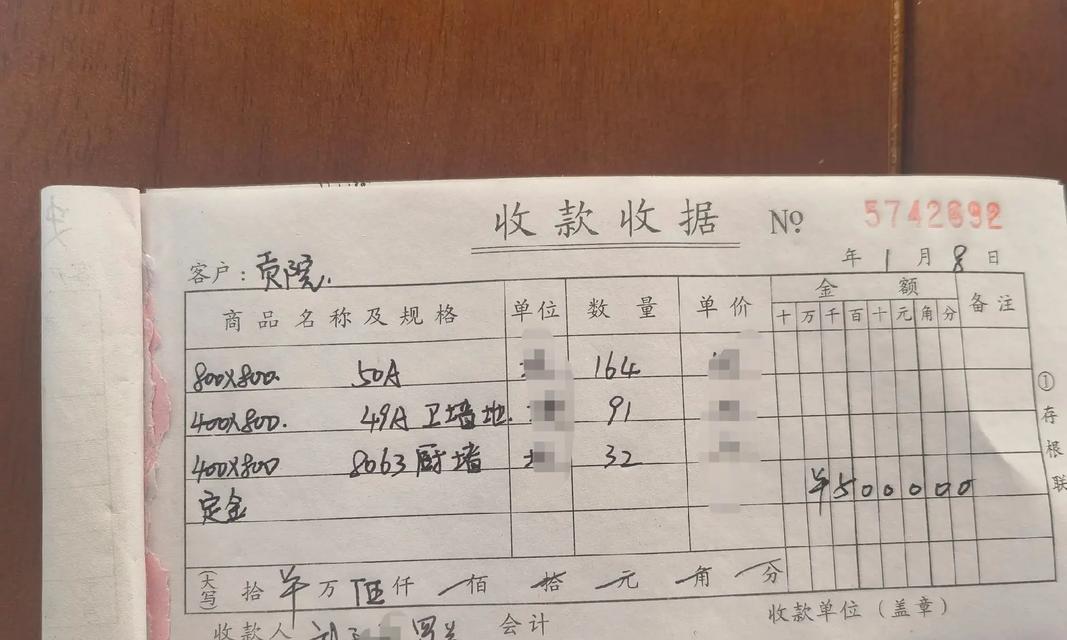 收款收据 No 5742692
年 1 月 8 日
客户：贡院.
商品名称及规格 单位 数量 单价 金额 备注
十 万 千 百 十 元 角 分
800X800. 50A 164
400X800. 49A 卫墙地. 91
400X800 8063 厨墙 32
定金 ¥500000
①存根联
(大写) 拾 ¥ 万 伍 仟 佰 拾 元 角 分
收款人 会计 收款单位（盖章）